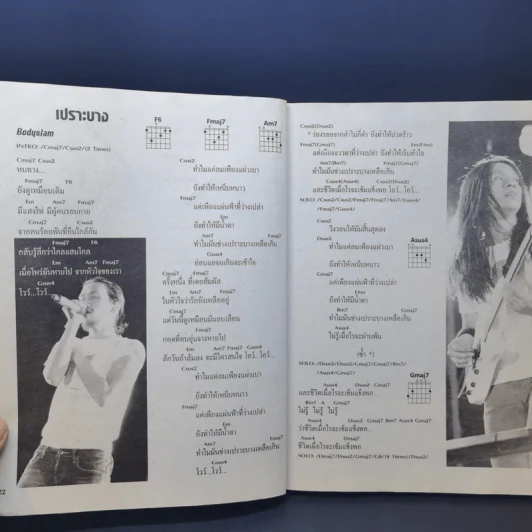 เปราะบาง
Bodyslam
INTRO: /Cmaj7/Csus2/(2 Times)
F6
Fmaj7
Am7
Cmaj7 Csus2
หนทาง...
Fmaj7 F6
ยังดูเหมือนเดิม
Em Am7 Fmaj7
มีแสงไฟ มีผู้คนรอบกาย
Cmaj7 Csus2
จากคนร้อยพันที่ยืนใกล้กัน
Fmaj7 F6
กลับรู้สึกว่าไกลแสนไกล
Em Am7 Fmaj7
เมื่อใครมันหายไป จากหัวใจของเรา
Gsus4
โว้ว..โว้ว...
Csus2
ทำไมแค่ลมเพียงแผ่วเบา
ยังทำให้เหน็บหนาว
Fmaj7
แค่เพียงแผ่นฟ้าที่ว่างเปล่า
Em
ยังทำให้มีน้ำตา
Am7 Fmaj7
ทำไมมันช่างเปราะบางเหลือเกิน
Gsus4
อ่อนแอจนเกินจะเข้าใจ
Cmaj7 Fmaj7
ครั้งหนึ่ง ที่เคยสัมผัส
Em Am7 Fmaj7
ในหัวใจว่ารักยังเหลืออยู่
Cmaj7
แต่วันนี้ดูเหมือนมันลบเลือน
Fmaj7
กอดที่อบอุ่นจางหายไป
Em Am7 Fmaj7 Gsus4
สักวันถ้าล้มลง จะมีใครสนใจ โอว์...โว้ว...
Csus2
ทำไมแค่ลมเพียงแผ่วเบา
ยังทำให้เหน็บหนาว
Fmaj7
แค่เพียงแผ่นฟ้าที่ว่างเปล่า
Em
ยังทำให้มีน้ำตา
Am7 Fmaj7
ทำไมมันช่างเปราะบางเหลือเกิน
Gsus4
โว้ว...โว้ว...
Csus2(Dsus2)
* ร่องรอยจากคำไม่กี่คำ ยังทำให้ปวดร้าว
Fmaj7(Gmaj7) Em(F#m)
แค่เพียงแววตาที่ว่างเปล่า ยังทำให้เจ็บหัวใจ
Am7(Bm7) Fmaj7(Gmaj7)
ทำไมมันช่างเปราะบางเหลือเกิน
Gsus4(Asus4) Csus2(Dsus2)
และชีวิตเมื่อไรจะเข้มแข็งพอ โอว์...โว้ว...
Csus2
วิงวอนให้มันสิ้นสุดลง
Dsus2
ทำไมแค่ลมเพียงแผ่วเบา
ยังทำให้เหน็บหนาว
Asus4
Gmaj7
แค่เพียงแผ่นฟ้าที่ว่างเปล่า
ยังทำให้มีน้ำตา
Bm7 Gmaj7
ทำไมมันช่างเปราะบางเหลือเกิน
Asus4
ไม่รู้เมื่อไรจะผ่านพ้น
(ซ้ำ *)
/Asus4/Gmaj7/
Gmaj7
Asus4 Dsus2 Gmaj7
และชีวิตเมื่อไรจะเข้มแข็งพอ
Bm7 A Gmaj7
ไม่รู้ ไม่รู้ ไม่รู้
Asus4 Dsus2 Gmaj7 Bm7 Asus4 Gmaj7
ว่าชีวิตเมื่อไรจะเข้มแข็งพอ...
Asus4 Dsus2
ชีวิตเมื่อไรจะเข้มแข็งพอ